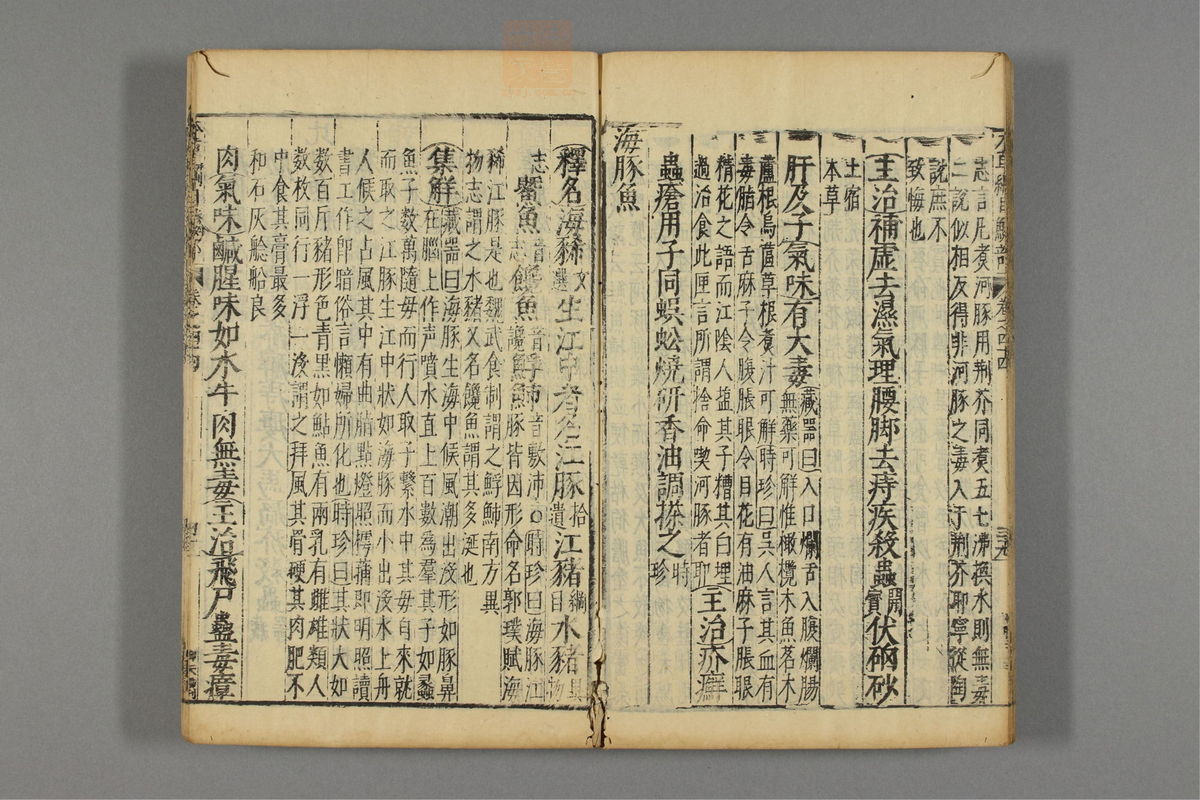 志言凡煮河豚用荆芥同煮五七沸換水則無毒
二說似相反得非河豚之毒入于荆芥耶寧從陶
說庶不
致悔也
主治補虛去濕氣理腰脚去痔疾殺蟲開寶伏硇砂
土宿
本草
肝及子氣味有大毒藏器曰入口爛舌入腹爛腸
無藥可解惟橄欖木魚茗木
蘆根烏蓲草根煮汁可解時珍曰吳人言其血有
毒脂令舌麻子令腹脹眼令目花有油麻子脹眼
精花之語而江陰人鹽其子糟其白埋
過治食此匪言所謂捨命喫河豚者耶主治疥癬
蟲瘡用子同蜈蚣燒研香油調搽之時
珍
海豚魚
釋名海豨文
選生江中者名江豚拾
遺江豬綱
目水豬異
物
志鱀魚音
志饞魚音讒䱐䰽音敷沛○時珍曰海豚江
豚皆因形命名郭璞賦海
豨江豚是也魏武食制謂之䱐䰽南方異
物志謂之水豬又名饞魚謂其多涎也
集解藏器曰海豚生海中候風潮出没形如豚鼻
在腦上作声噴水直上百數為羣其子如蠡
魚子數萬隨母而行人取子繫水中其母自來就
而取之江豚生江中狀如海豚而小出没水上舟
人候之占風其中有曲脂點燈照樗蒱即明照讀
書工作即暗俗言懶婦所化也時珍曰其狀大如
數百斤豬形色青黑如鮎魚有兩乳有雌雄類人
数枚同行一浮一没謂之拜風其骨硬其肉肥不
中食其膏最多
和石灰艌船良
肉氣味鹹腥味如水牛肉無毒主治飛尸蠱毒瘴